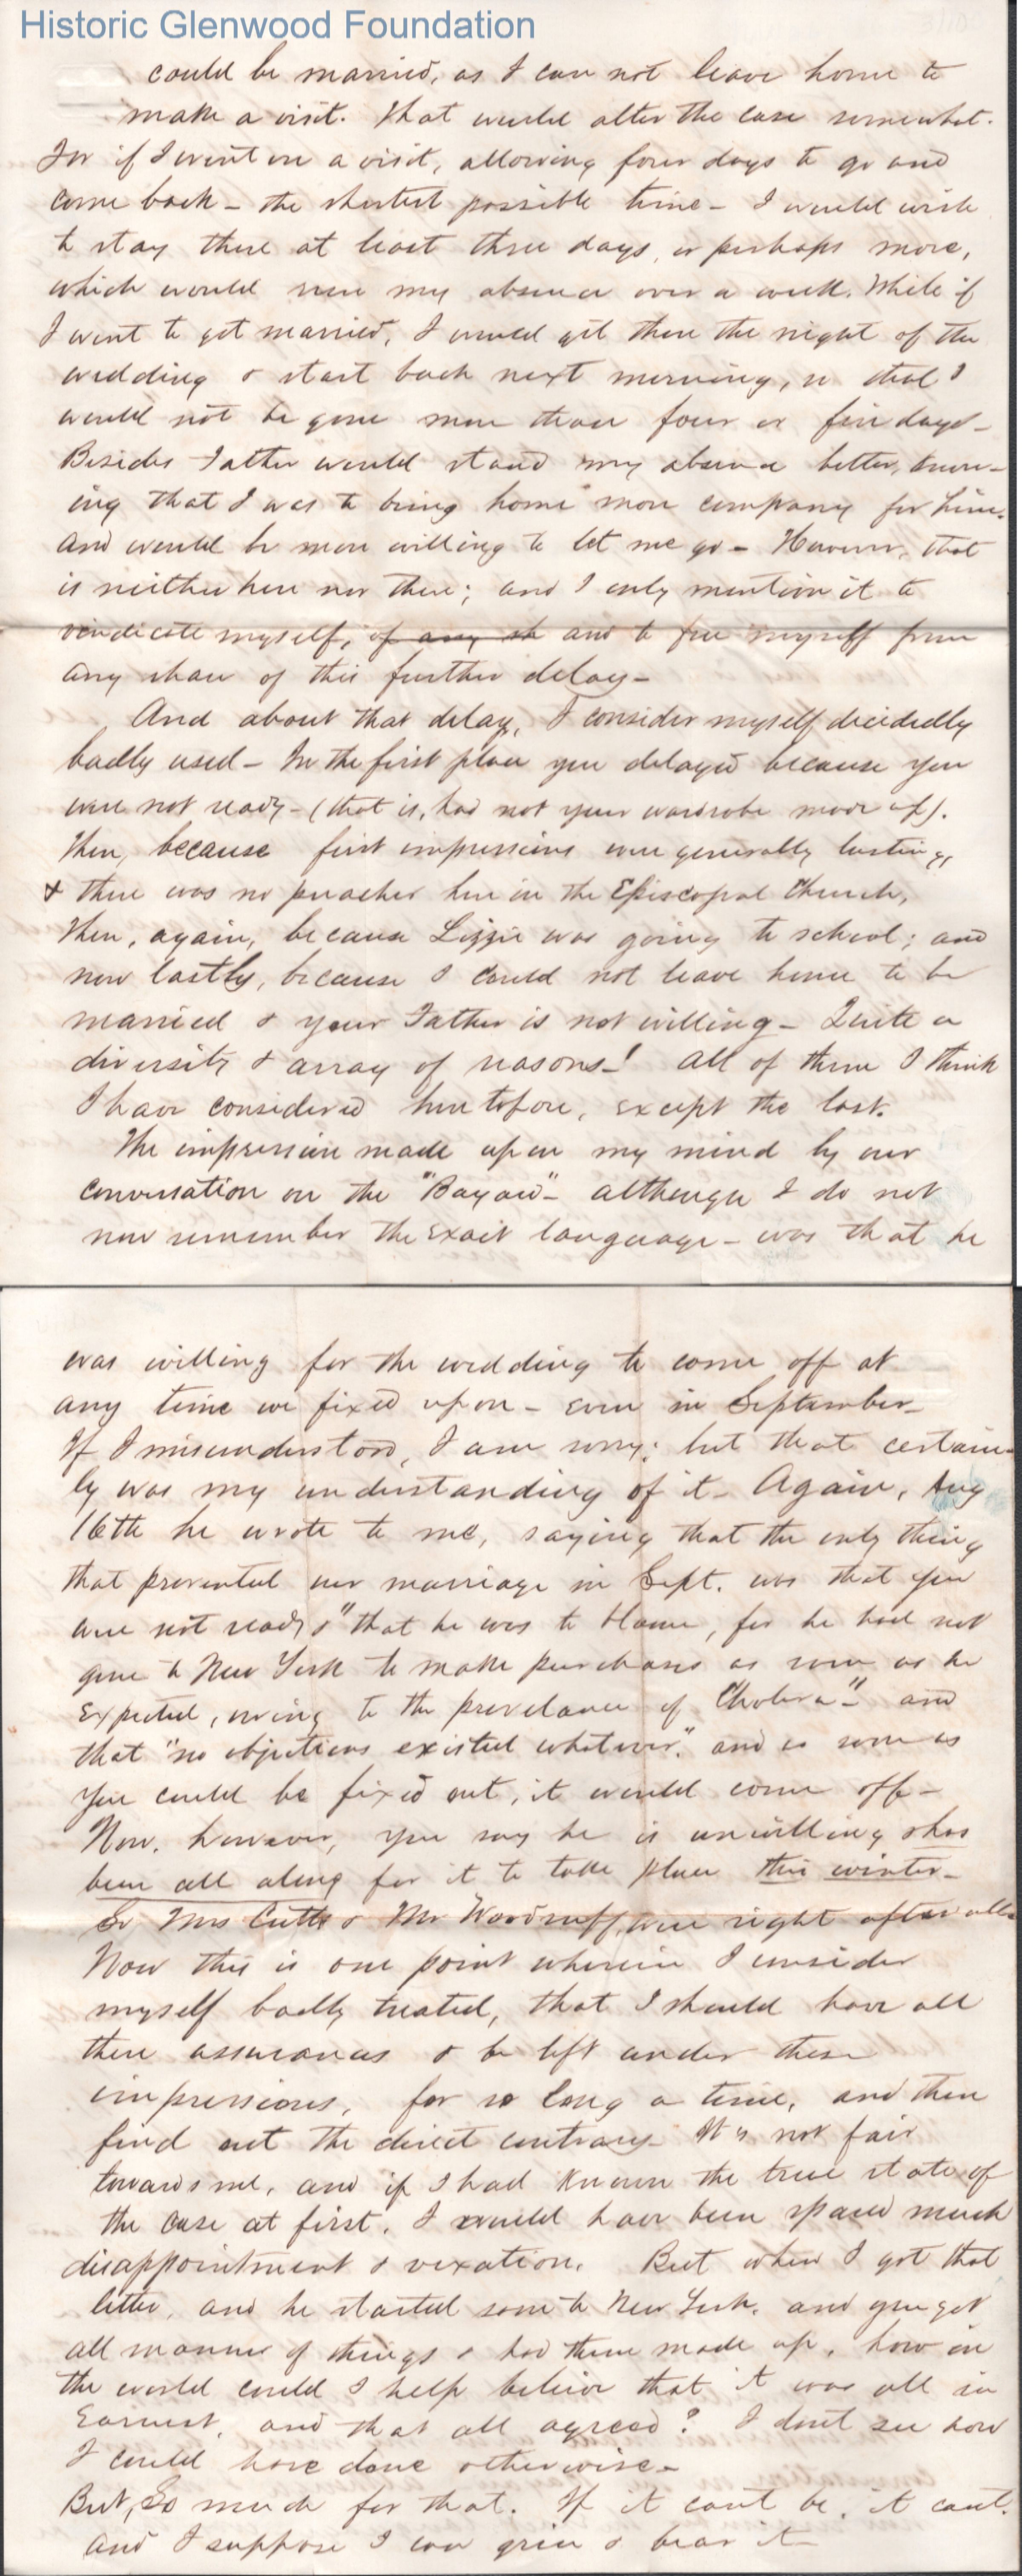 Historic Glenwood Foundation
could be married, as I can not leave home to
make a visit. That would alter the case somewhat.
For if I went on a visit, allowing four days to go and
come back - the shortest possible time - I would wish
to stay there at least three days, or perhaps more,
which would run my absence over a week. While if
I went to get married, I would get there the night of the
wedding & start back next morning, so that I
would not be gone more than four or five days -
Besides Father would stand my absence better, know-
ing that I was to bring home more company for him.
And would be more willing to let me go - However, that
is neither here nor there; and I only mention it to
vindicate myself, of any sh and to free myself from
any share of this further delay -
And about that delay, I consider myself decidedly
badly used - In the first place you delayed because you
were not ready - (that is, had not your wardrobe made up).
Then, because first impressions were generally lasting,
& there was no preacher here in the Episcopal Church,
Then, again, because Lizzie was going to school; and
now lastly, because I could not leave home to be
married & your Father is not willing - Quite a
diversity & array of reasons! All of them I think
I have considered heretofore, except the last.
The impression made upon my mind by our
conversation on the "Bayou" - although I do not
now remember the exact language - was that he
was willing for the wedding to come off at
any time we fixed upon - even in September -
If I misunderstood, I am sorry; but that certain-
ly was my understanding of it - Again, Aug
16th he wrote to me, saying that the only thing
that prevented our marriage in Sept. was that you
were not ready & "that he was to blame, for he had not
gone to New York to make purchases as soon as he
expected, owing to the prevelance of Cholera" - and
that "no objections existed whatever", and as soon as
you could be fixed out, it would come off -
Now, however, you say he is unwilling & has
been all along for it to take place this winter -
So Mrs Cutts & Mr Woodruff, were right after all -
Now this is one point wherein I consider
myself badly treated, that I should have all
these assurances & be left under these
impressions, for so long a time, and then
find out the direct contrary - It is not fair
towards me, and if I had known the true state of
the case at first, I would have been spared much
disappointment & vexation. But when I got that
letter, and he started soon to New York, and you got
all manner of things & had them made up, how in
the world could I help believe that it was all in
earnest, and that all agreed? I dont see how
I could have done otherwise -
But, So much for that. If it cant be, it cant.
And I suppose I can grin & bear it -